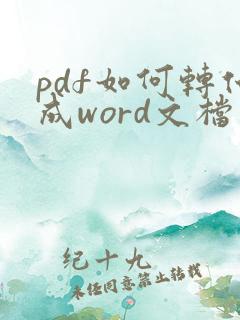 pdf如何轉
成word文檔
纪十九
未经同意禁止转载